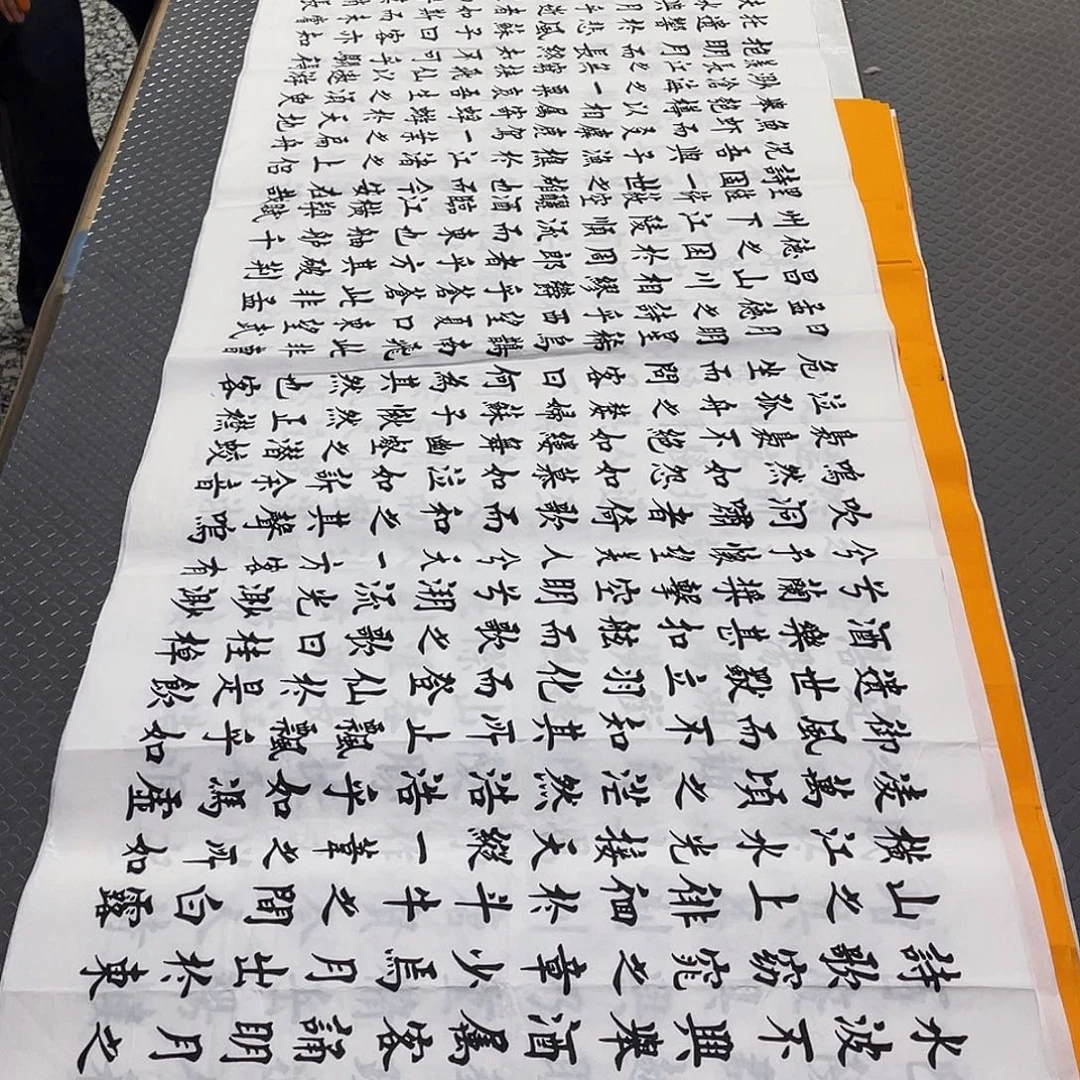 水波不興舉酒屬客誦明月之
詩歌窈窕之章少焉月出於東
山之上徘徊於斗牛之間白露
橫江水光接天縱一葦之所如
凌萬頃之茫然浩浩乎如馮虛
御風而不知其所止飄飄乎如
遺世獨立羽化而登仙於是飲
酒樂甚扣舷而歌之歌曰桂棹
兮蘭槳擊空明兮溯流光渺渺
兮予懷望美人兮天一方客有
吹洞嘯者倚歌而和之其聲鳴
鳴然如怨如慕如泣如訴余音
裊裊不絕如縷舞幽壑之潜蛟
泣孤舟之嫠婦蘇子愀然正襟
危坐而問客曰何為其然也客
曰月明星稀烏鵲南飛此非曹
孟德之詩乎西望夏口東望武
昌山川相繆乎蒼蒼此非孟
德之困於周郎者乎方其破荊
州下江陵順流而東也舳艫千
里旌旗蔽空釃酒臨江橫槊賦
詩固一世之雄也而今安在哉
況吾與子漁樵於江渚之上侶
魚蝦而友麋鹿駕一葉之扁舟
舉匏樽以相屬寄蜉蝣於天地
渺滄海之一粟哀吾生之須臾
羨長江之無窮挾飛仙以遨遊
抱明月而長終知不可乎驟得
托遺響於悲風蘇子曰客亦知